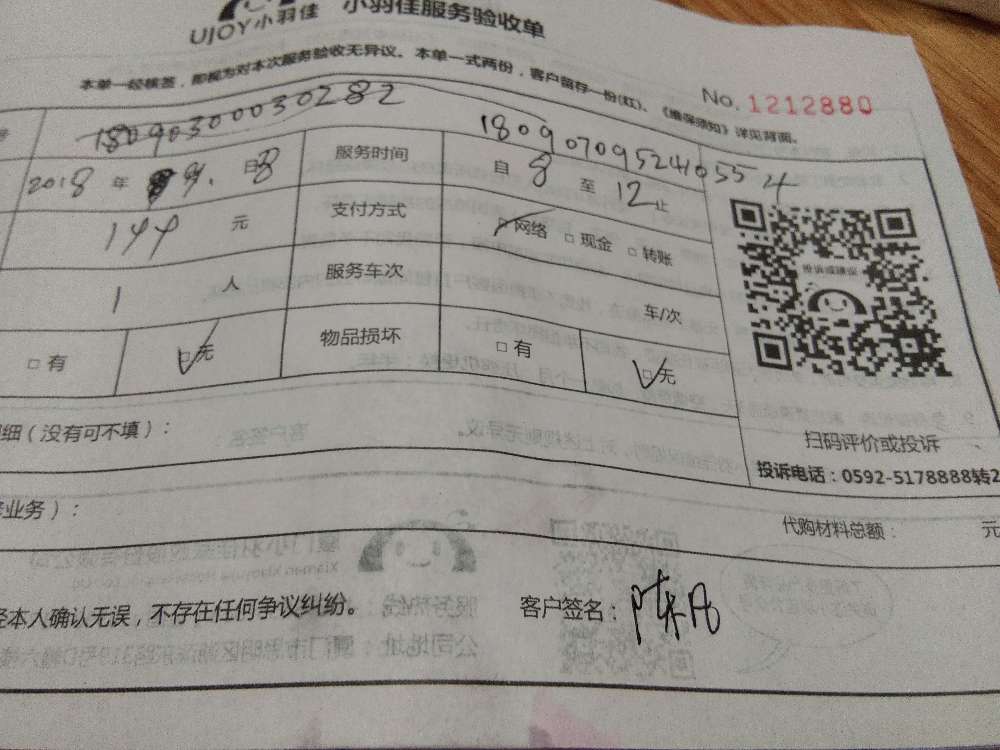 UJOY小羽佳 小羽佳服务验收单
本单一经核签，即视为对本次服务验收无异议。本单一式两份，客户留存一份(红)、《维保须知》详见背面。
No. 1212880
180903000030282 1809070952410554
2018年 9. 日8 服务时间 自8至12止
144 元 支付方式 □网络 □现金 □转账
1 人 服务车次 车/次
□有 □无 物品损坏 □有 □无
投诉或建议
扫码评价或投诉
投诉电话：0592-5178888转2
细（没有可不填）：
业务）：
代购材料总额： 元
本人确认无误，不存在任何争议纠纷。 客户签名：